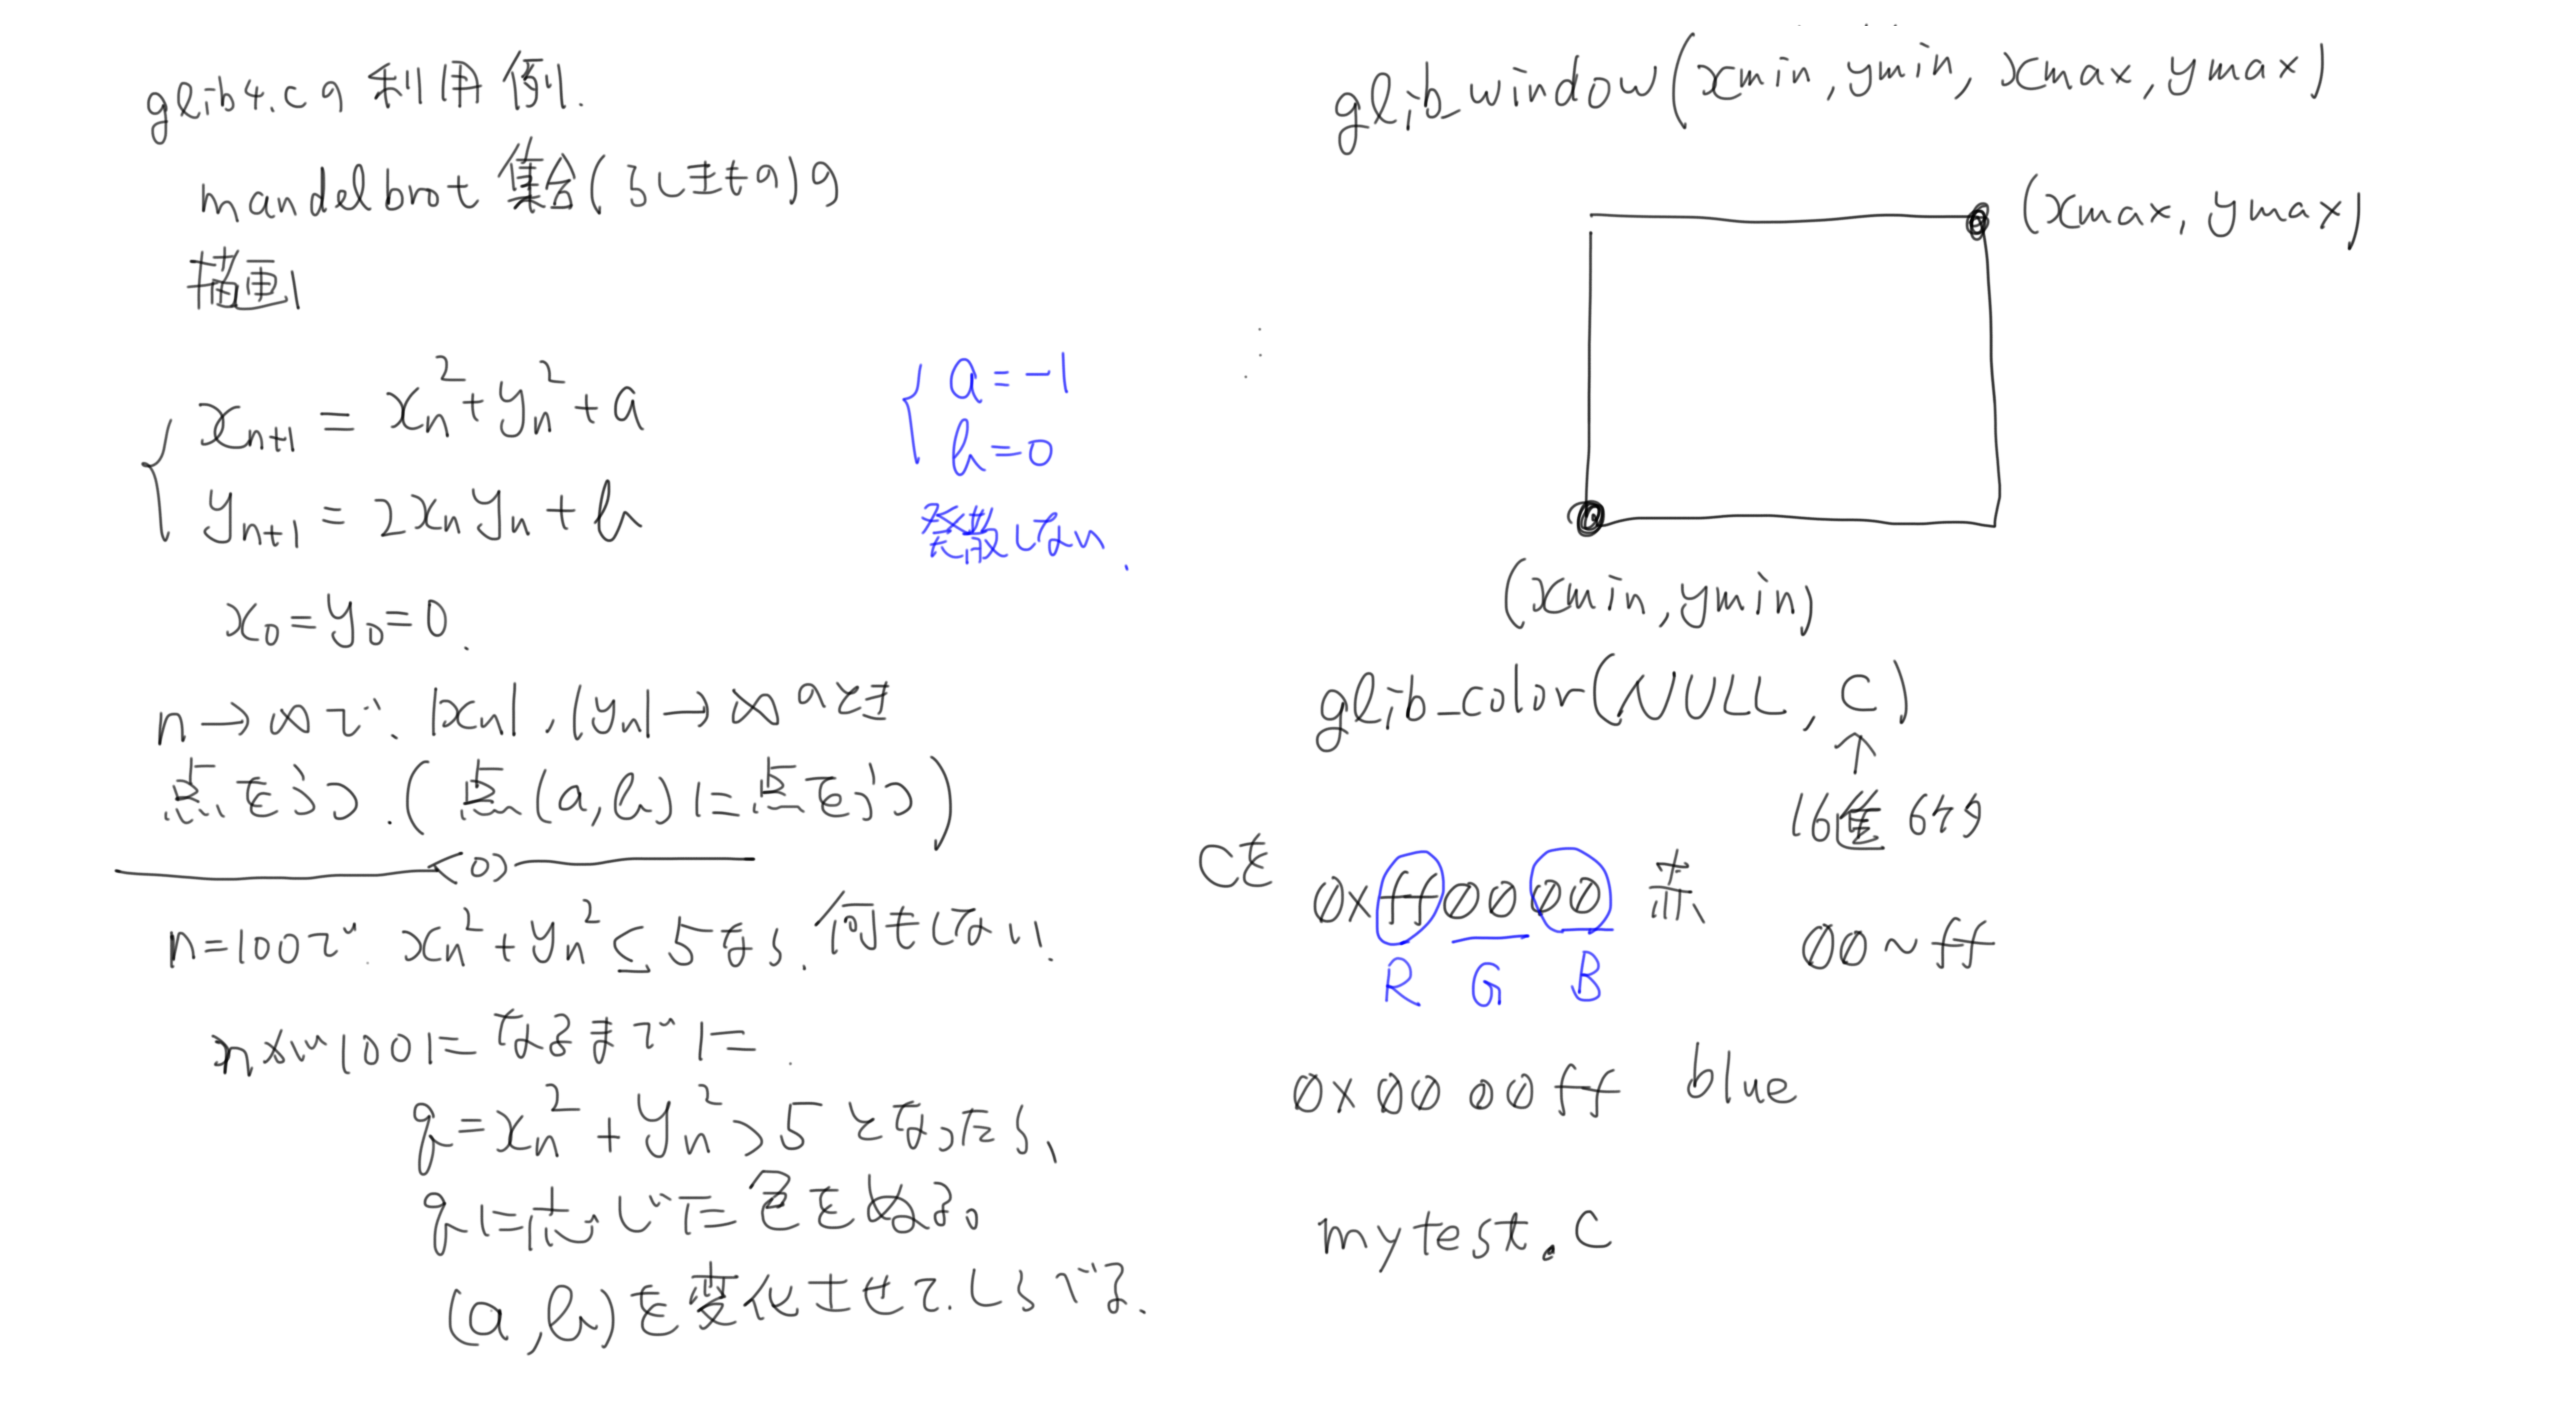 glib4.c の 利用例.
mandelbrot 集合(らしきもの)の
描画
x_{n+1} = x_n^2 + y_n^2 + a
y_{n+1} = 2x_n y_n + b
x_0 = y_0 = 0.
n → ∞ で、|x_n|, |y_n| → ∞ のとき
点をうつ.(点(a, b)に点をうつ)
<0>
n=100で x_n^2 + y_n^2 ≤ 5なら、何もしない.
nが100になるまでに.
q = x_n^2 + y_n^2 > 5となったら、
qに応じた色をぬる。
(a, b)を変化させて、しらべる.
a = -1
b = 0
発散しない.
glib_window(xmin, ymin, xmax, ymax)
(xmax, ymax)
(xmin, ymin)
glib_color(NULL, C)
↑
16進 6ケタ
Cを 0xff0000 赤
00~ff
R G B
0x0000ff blue
mytest.c